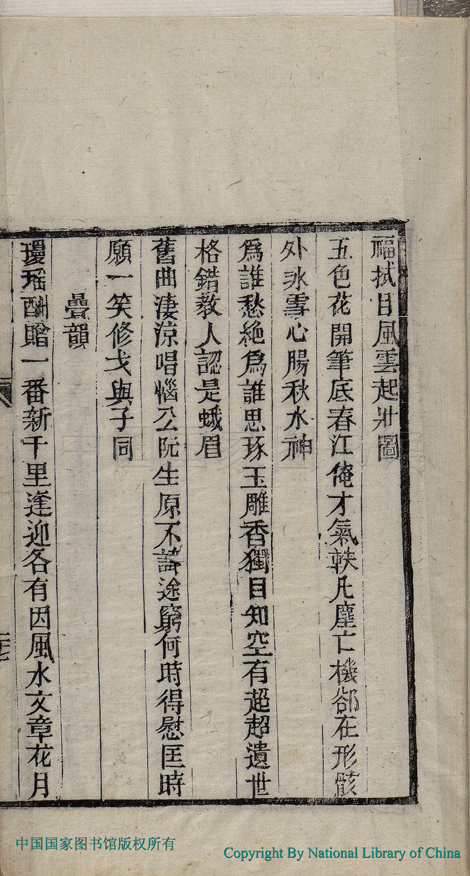 福拭目風雲起壯圖
五色花開筆底春江俺才氣軼凡塵亡機郤在形骸
外氷雪心腸秋水神
爲誰愁絶爲誰思琢玉雕香獨目知空有超超遺世
格錯教人認是蛾眉
舊曲淒涼唱惱公阮生原不論途窮何時得慰匡時
願一笑修戈與子同
疊韻
瓊瑤酬贈一番新千里逢迎各有因風水文章花月
中国国家图书馆版权所有
Copyright By National Library of China